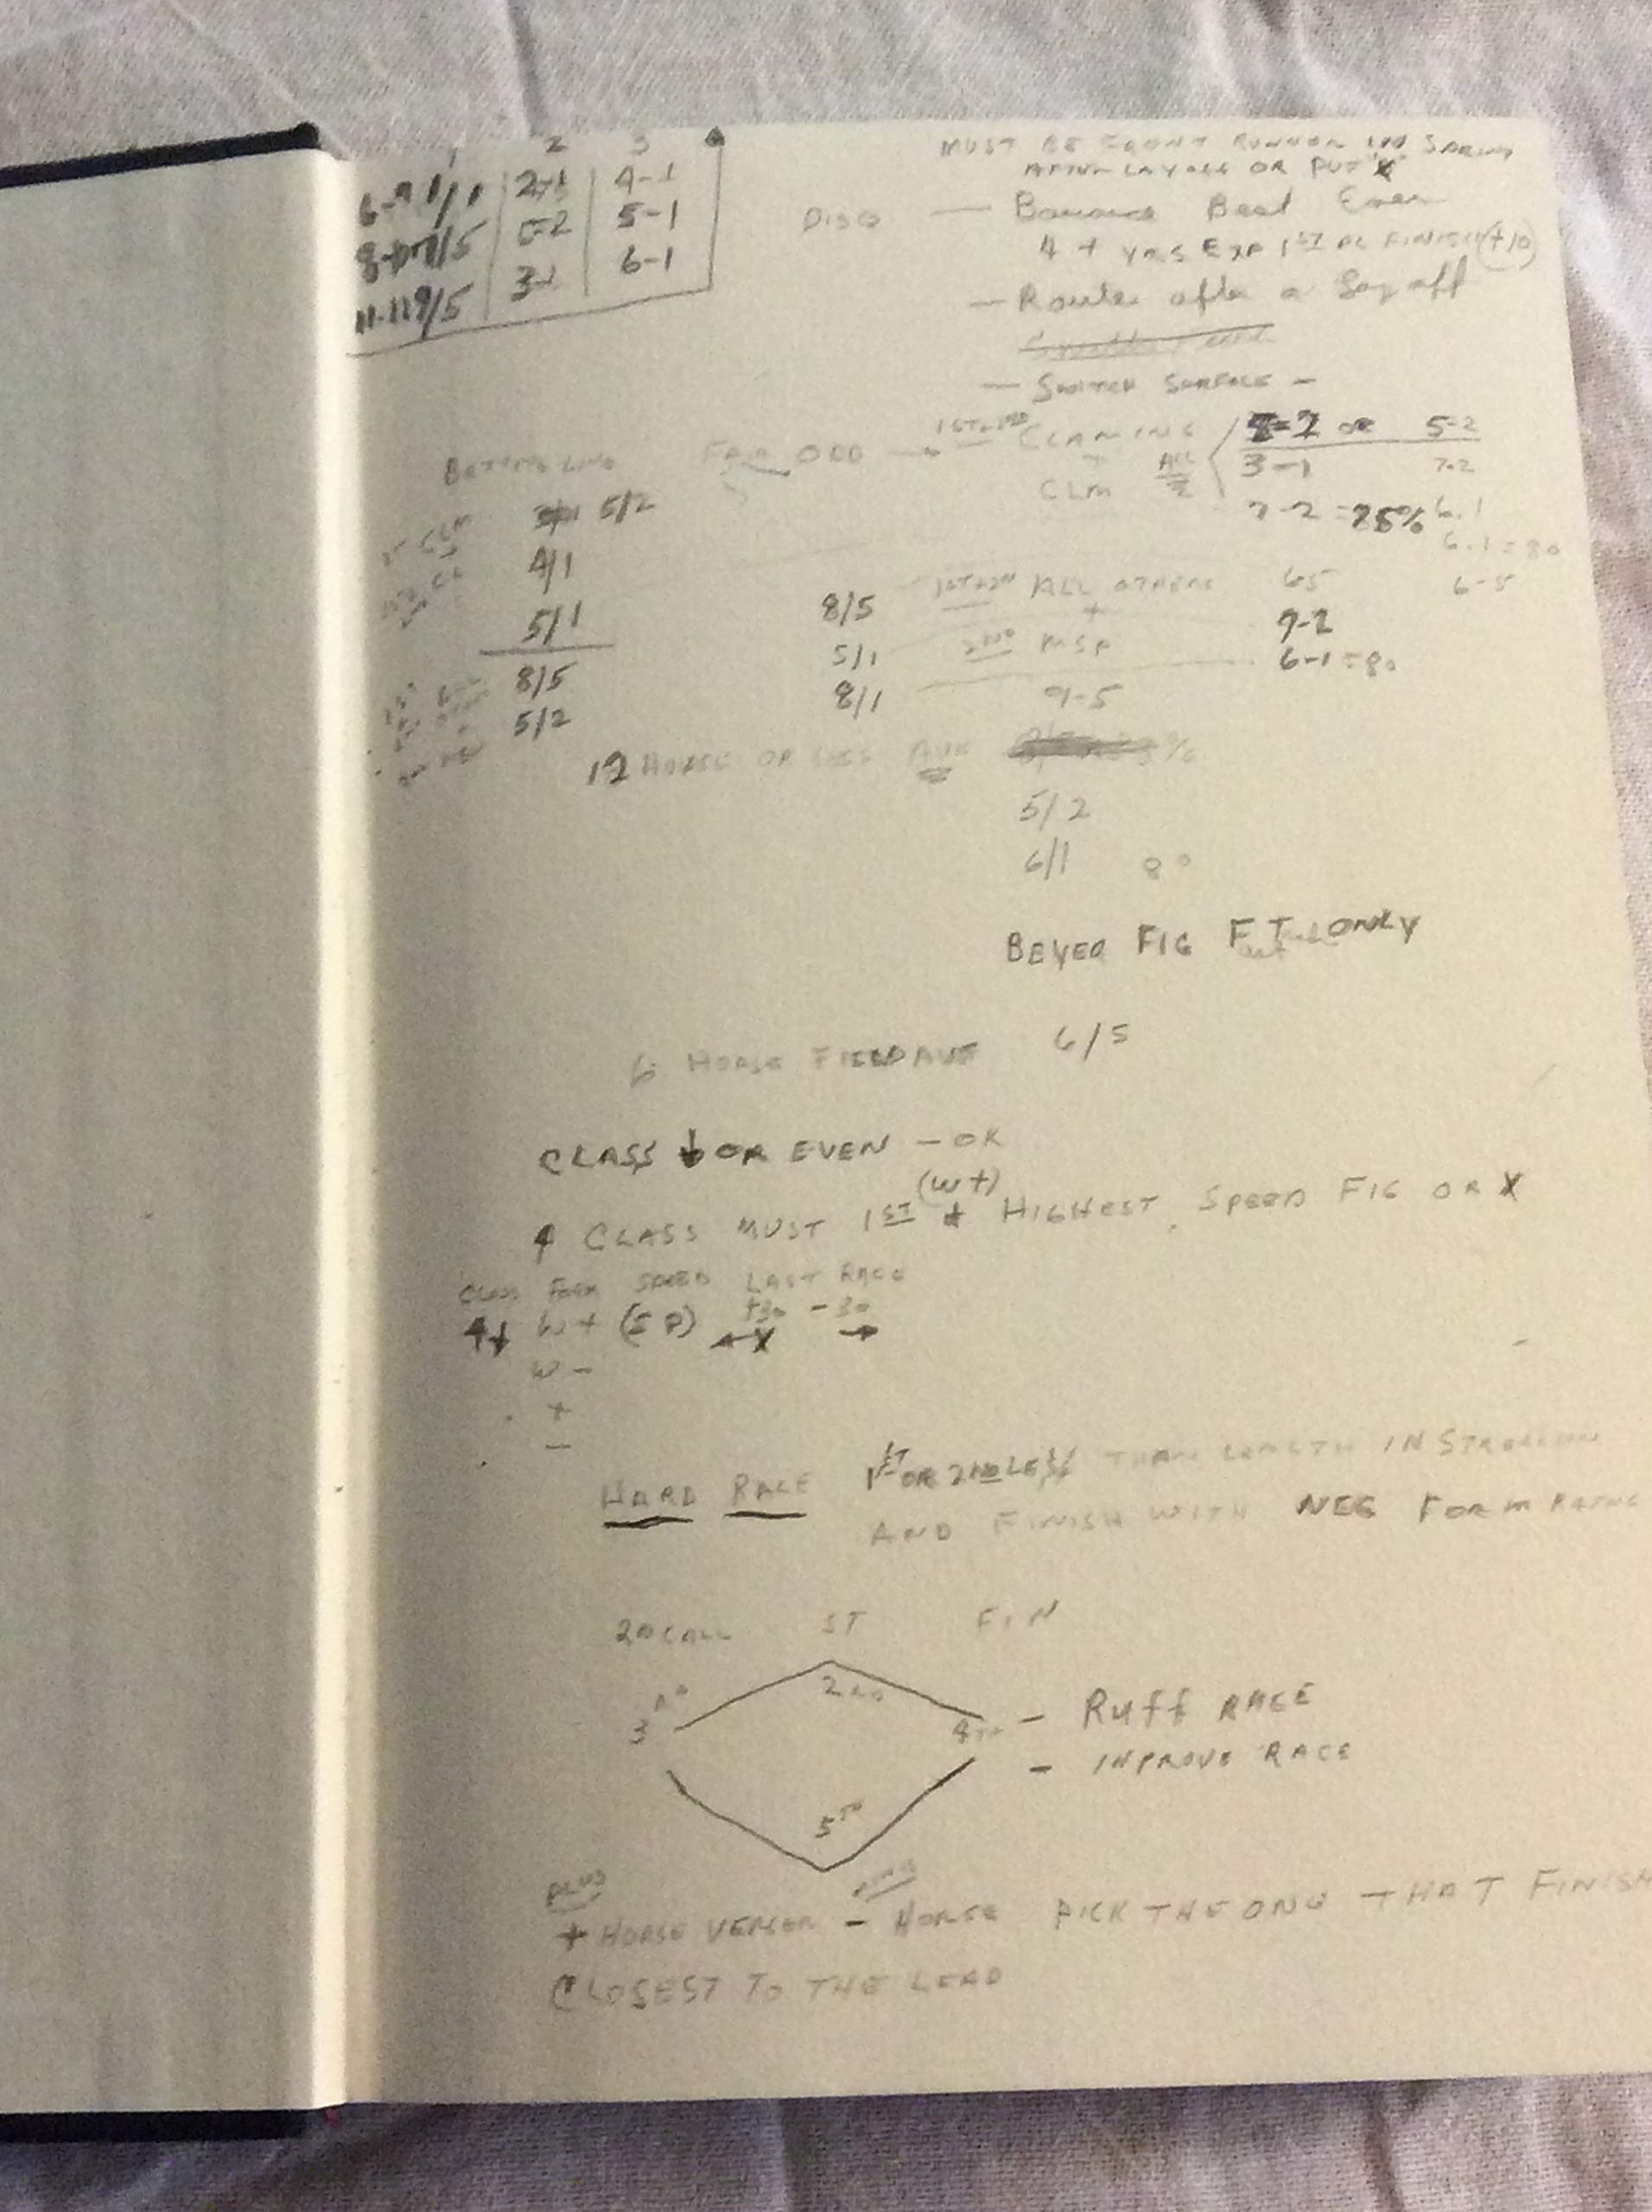 1 2 3
6-9 1/1 2-1 4-1
7/5 5-2 5-1
9/5 3-1 6-1
MUST BE FRONT RUNNER IN
AFTER LAYOFF OR PUT X
DISQ — Bounce Beat Even
4 + YRS EXP 1ST PL FINISH (+10)
— Router after a Layoff
— SWITCH SURFACE —
BETTING LINE FAIR ODD 1ST CLAMING 5-2
CLM ALL 2 3-1 7-2
7-2 = 25% 6-1
6-1 = 80
1ST CLM 5/2
4/1
5/1
8/5 ALL OTHERS 65 6-5
+ 9-2
5/1 2ND MSP 6-1 = 80
8/1 9-5
8/5
5/2
12 HORSE OR LESS AVE
5/2
6/1 80
BEYER FIG ONLY
6 HORSE FIELD AVE 6/5
CLASS ↓ OR EVEN - OK
(W+)
↑ CLASS MUST 1ST + HIGHEST SPEED FIG OR X
CLASS FORM SPEED LAST RACE
↑↓ W+ (SP) +30 -30
← X →
W -
+
-
HARD RACE 1ST OR 2ND LESS THAN LENGTH IN
AND FINISH WITH NEG FORM RATNG
2ND CALL ST FIN
3RD 2ND 4TH - RUFF RACE
- INPROVE RACE
5TH
PLUS
+ HORSE VERSER - HORSE PICK THE ONE THAT FINISH
CLOSEST TO THE LEAD